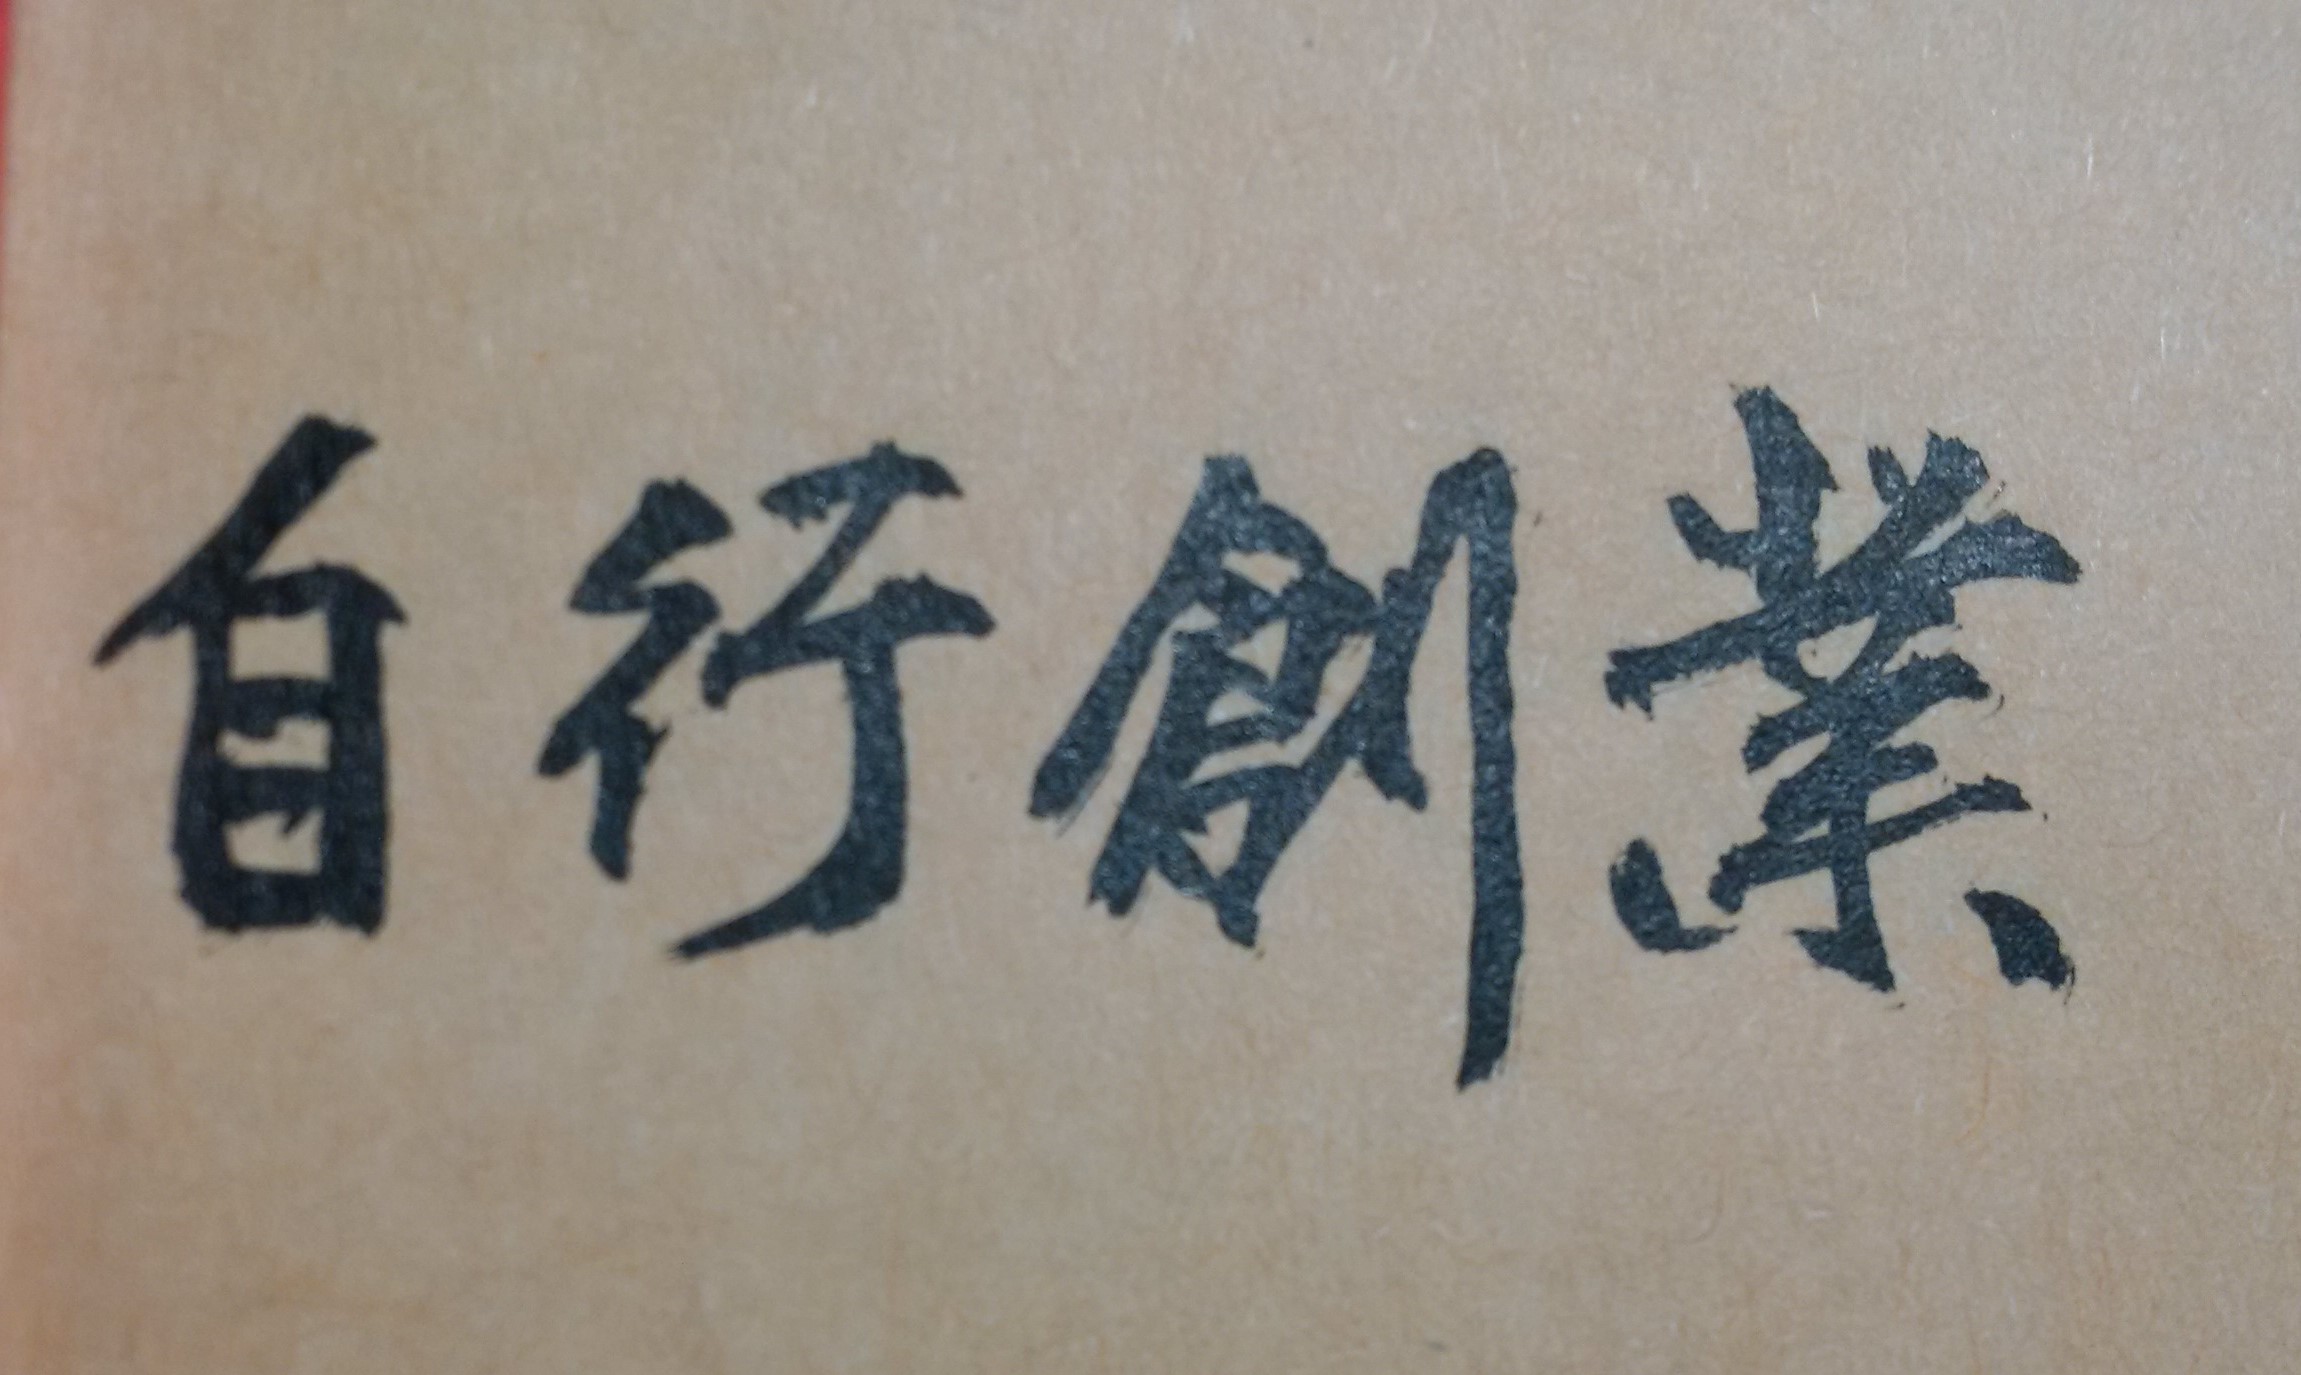 自行創業